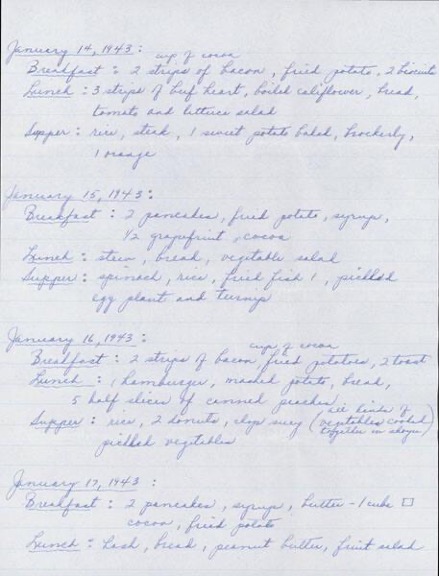 January 14, 1943:
cup of cocoa
Breakfast: 2 strips of bacon, fried potato, 2 biscuits
Lunch: 3 strips of beef heart, boiled califlower, bread,
tomato and lettuce salad
Supper: rice, steak, 1 sweet potato baked, brockerly,
1 orange
January 15, 1943:
Breakfast: 2 pancakes, fried potato, syrup,
1/2 grapefruit, cocoa
Lunch: stew, bread, vegetable salad
Supper: spinach, rice, fried fish 1, pickled
egg plant and turnip
January 16, 1943:
cup of cocoa
Breakfast: 2 strips of bacon, fried potatoes, 2 toast
Lunch: 1 hamburger, mashed potato, bread,
5 half slices of canned peaches
Supper: rice, 2 donuts, chop suey (all kinds of
vegetables cooked
together in shoyu)
pickled vegetables
January 17, 1943:
Breakfast: 2 pancakes, syrup, butter - 1 cube □
cocoa, fried potato
Lunch: hash, bread, peanut butter, fruit salad